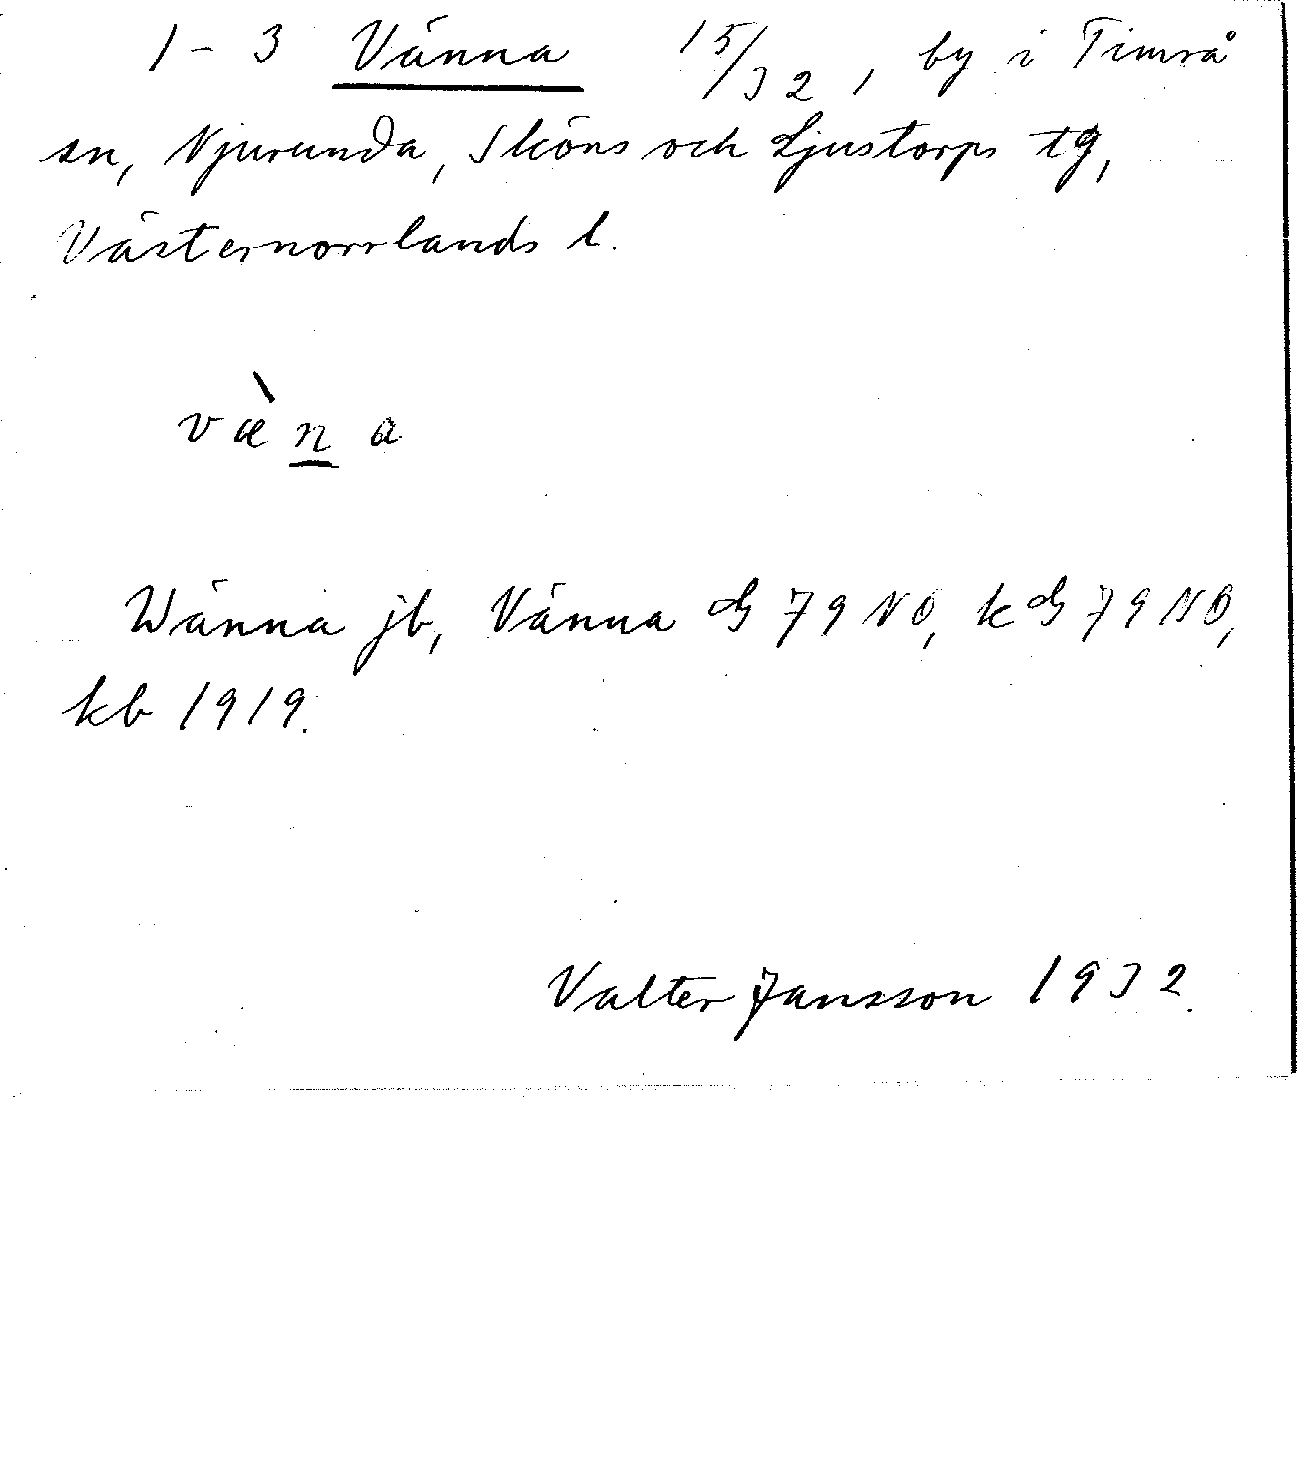 1-3 Vänna 15/32, by i Timrå
sn, Njurunda, Sköns och Ljustorps tg,
Västernorrlands l.
væ̀n̲a
Wänna jb, Vänna GS 79 NO, k GS 79 NO,
kb 1919.
Valter Jansson 1932.